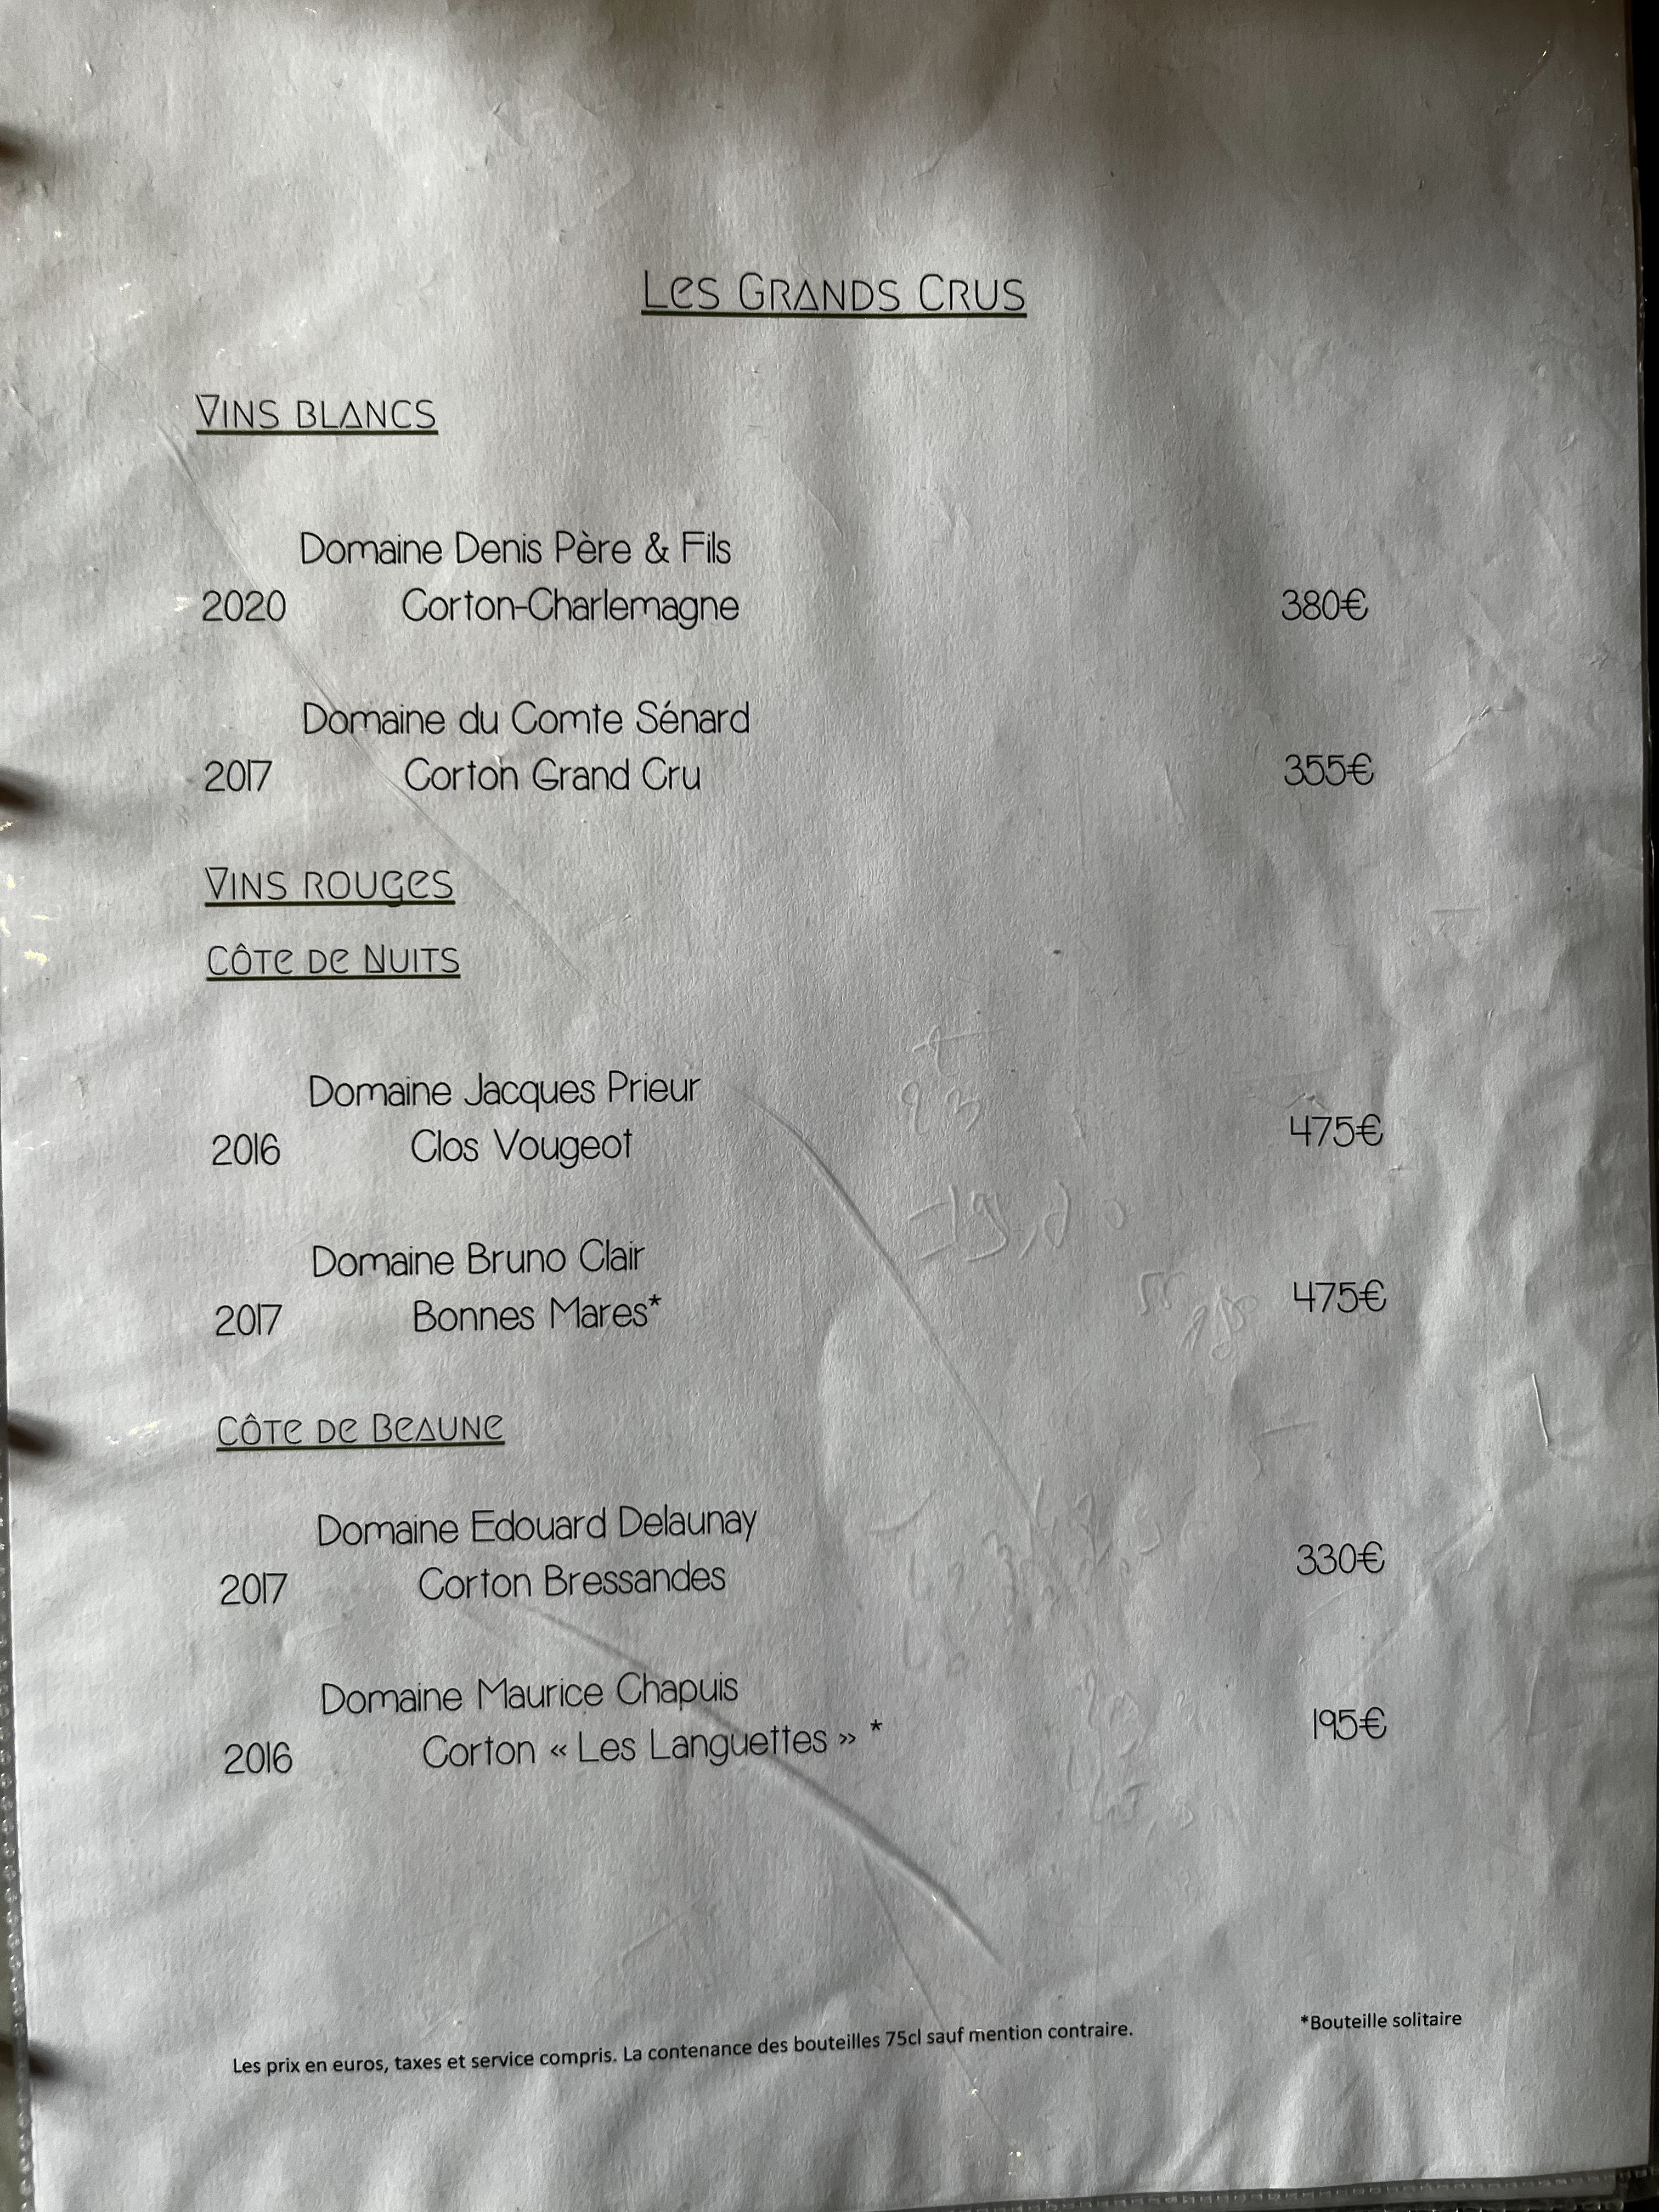 Les Grands Crus
Vins blancs
Domaine Denis Père & Fils
2020 Corton-Charlemagne 380€
Domaine du Comte Sénard
2017 Corton Grand Cru 355€
Vins rouges
Côte de Nuits
Domaine Jacques Prieur
2016 Clos Vougeot 475€
Domaine Bruno Clair
2017 Bonnes Mares* 475€
Côte de Beaune
Domaine Edouard Delaunay
2017 Corton Bressandes 330€
Domaine Maurice Chapuis
2016 Corton « Les Languettes » * 195€
*Bouteille solitaire
Les prix en euros, taxes et service compris. La contenance des bouteilles 75cl sauf mention contraire.